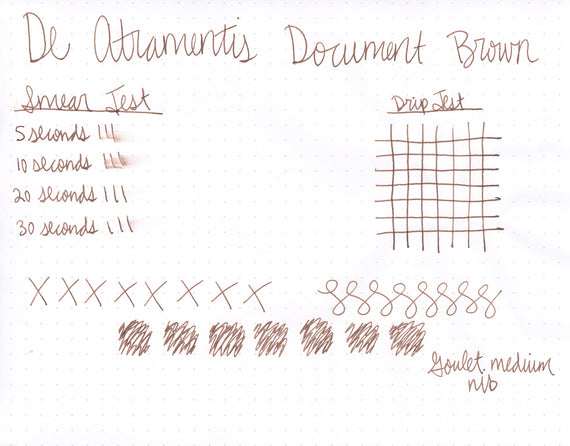 De Atramentis Document Brown
Smear Test
5 seconds
10 seconds
20 seconds
30 seconds
Drip Test
X X X X X X X X
Goulet medium
nib